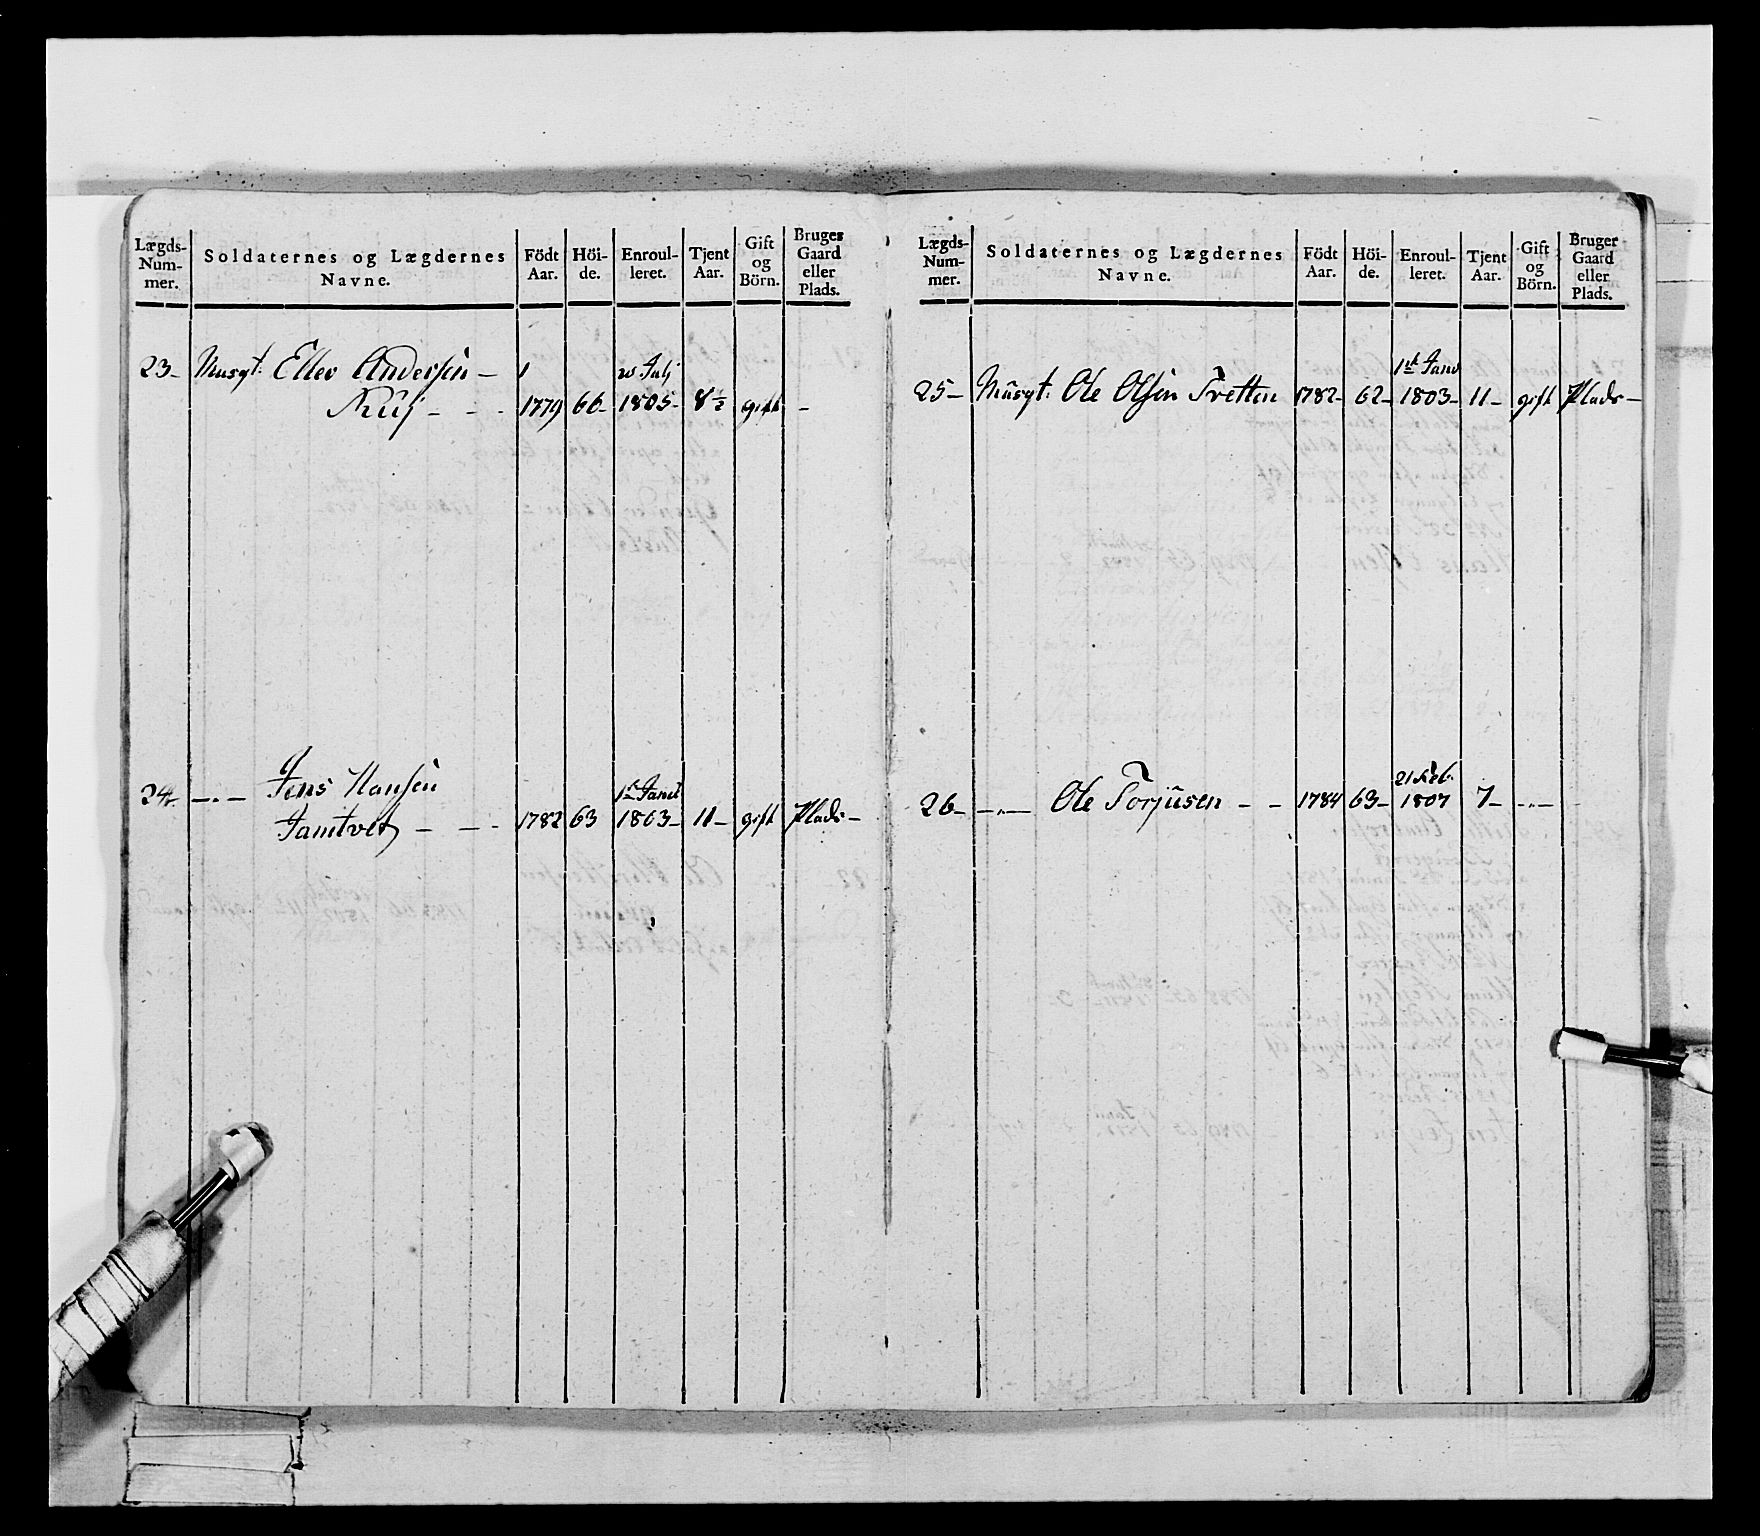 Lægds-
Num-
mer.
Soldaternes og Lægdernes
Navne.
Födt
Aar.
Höi-
de.
Enroul-
leret.
Tjent
Aar.
Gift
og
Börn.
Bruger
Gaard
eller
Plads.
23- Musqt: Ellev Andersen -
- - - 1779 66- 1805- 8½ gift -
24- -"- Jens Hansen
Jamtvet - - - 1782 63 1803- 11- gift Plads-
Lægds-
Num-
mer.
Soldaternes og Lægdernes
Navne.
Födt
Aar.
Höi-
de.
Enroul-
leret.
Tjent
Aar.
Gift
og
Börn.
Bruger
Gaard
eller
Plads.
1ste Janv
25- Musqt: Ole Olsen Tretten 1782- 62- 1803- 11- gift Plads-
21 Feb.
26- -"- Ole Torjusen - - 1784 63- 1807 7- -"-